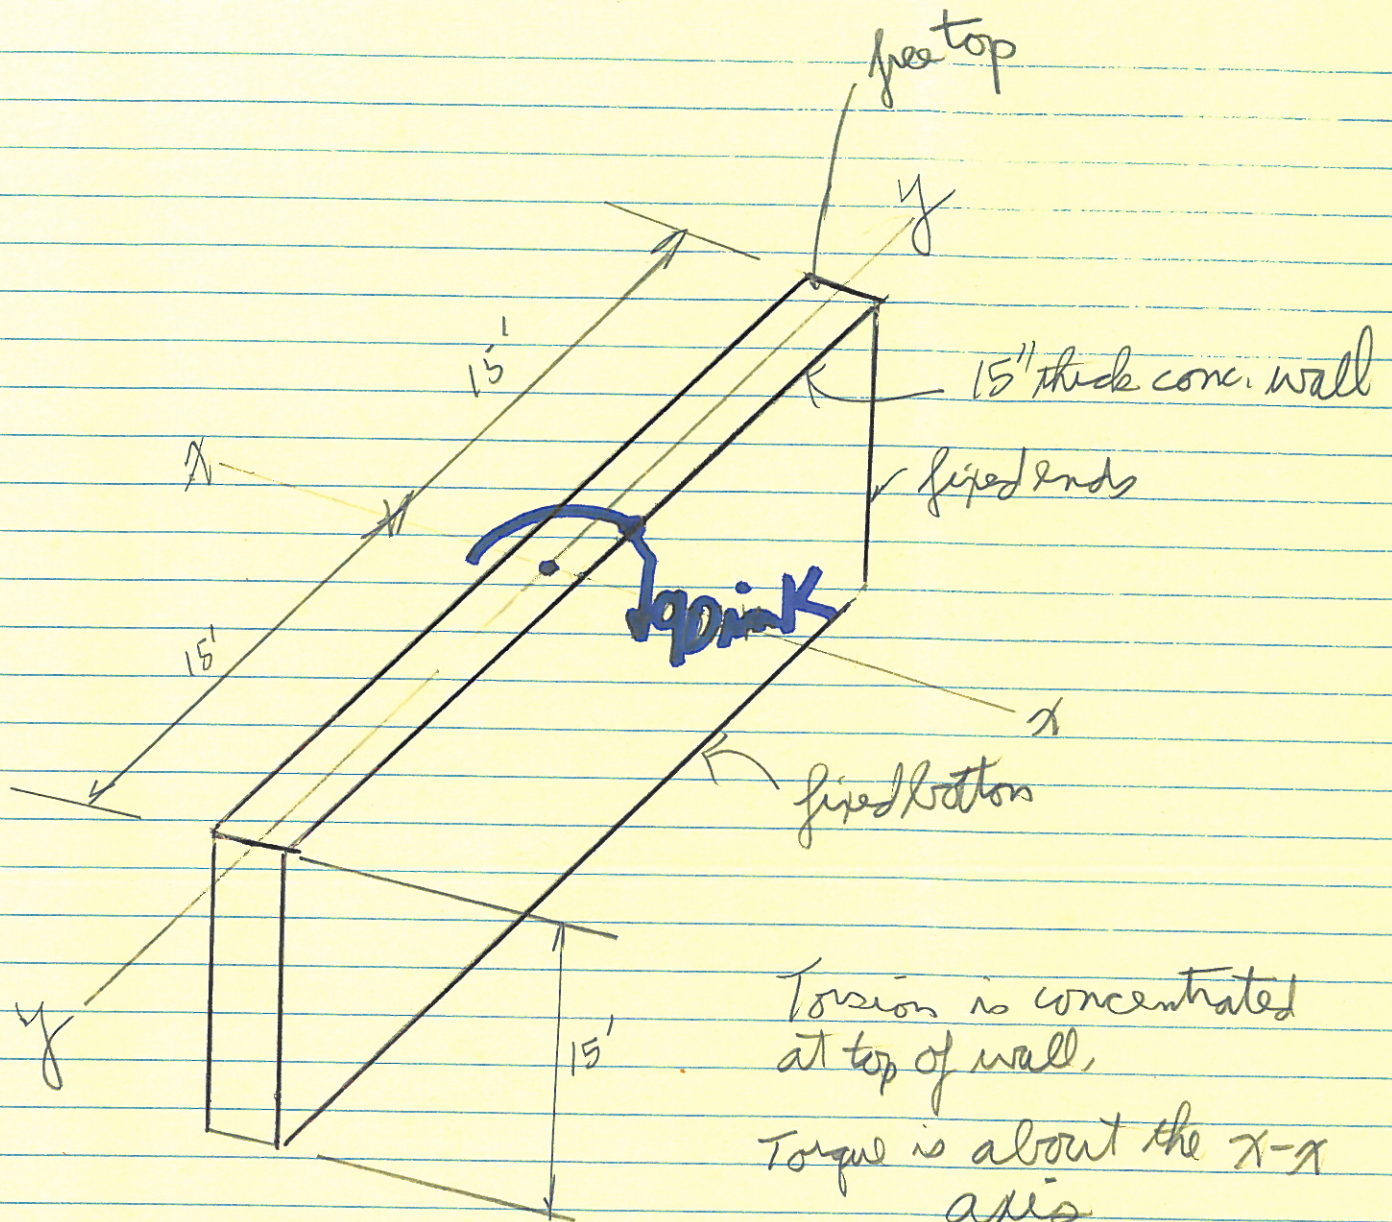 free top
y
15'
15" thick conc. wall
x
fixed ends
90 in K
15'
x
fixed bottom
y
15'
Torsion is concentrated
at top of wall.
Torque is about the x-x
axis